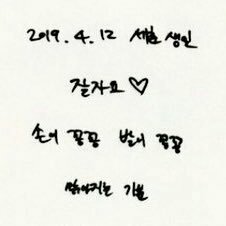 2019. 4. 12 세훈 생일
잘자요 ♡
손이 꽁꽁 발이 꽁꽁
맑아지는 기분